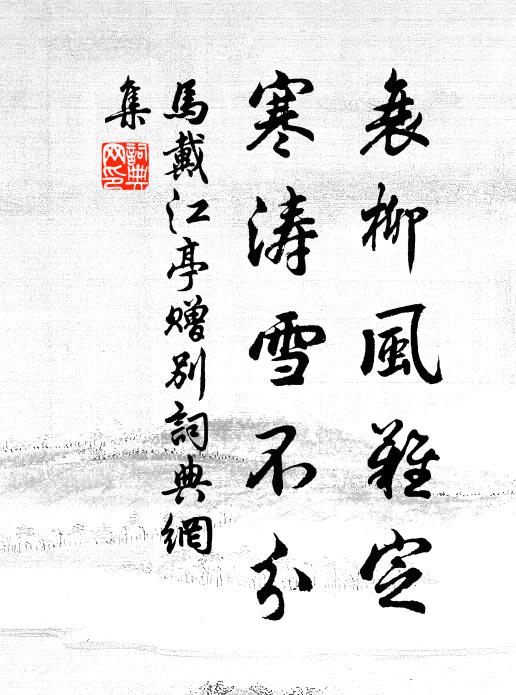 衰柳風難定
寒涛雪不分
馬戴江亭贈別詞典網
集
詞典网印